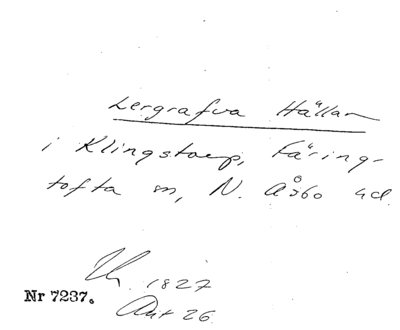 Lergrafva Hällan
i Klingstorp, Färing-
tofta sn, N. Åsbo hd
1827
Nr 7237.
26